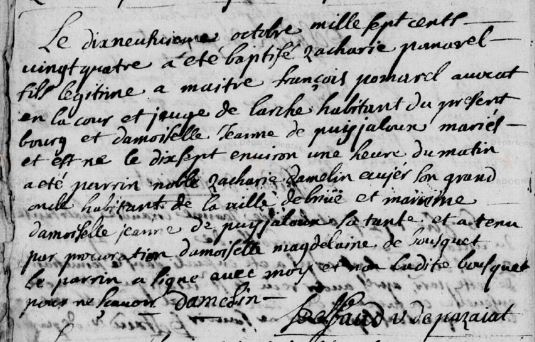 Le dixneufvieme octobre mille sept cents
vingt quatre a été baptisé zacharie pomarel
fils legitime a maitre françois pomarel avocat
en la cour et jeuge de larche habitant du present
bourg et damoiselle jeanne de puyjaloux mariés
et est né le dixsept environ une heure du matin
a été parrin noble zacharie damelin son grand
oncle habitant de la ville de brive et marrine
damoiselle jeanne de puyjaloux sa tante et a tenu
par procuration damoiselle magdelaine de bousquet
le parrin a signé avec moy et non ladite bousquet
pour ne scavoir Damelin
v. de pazaiat